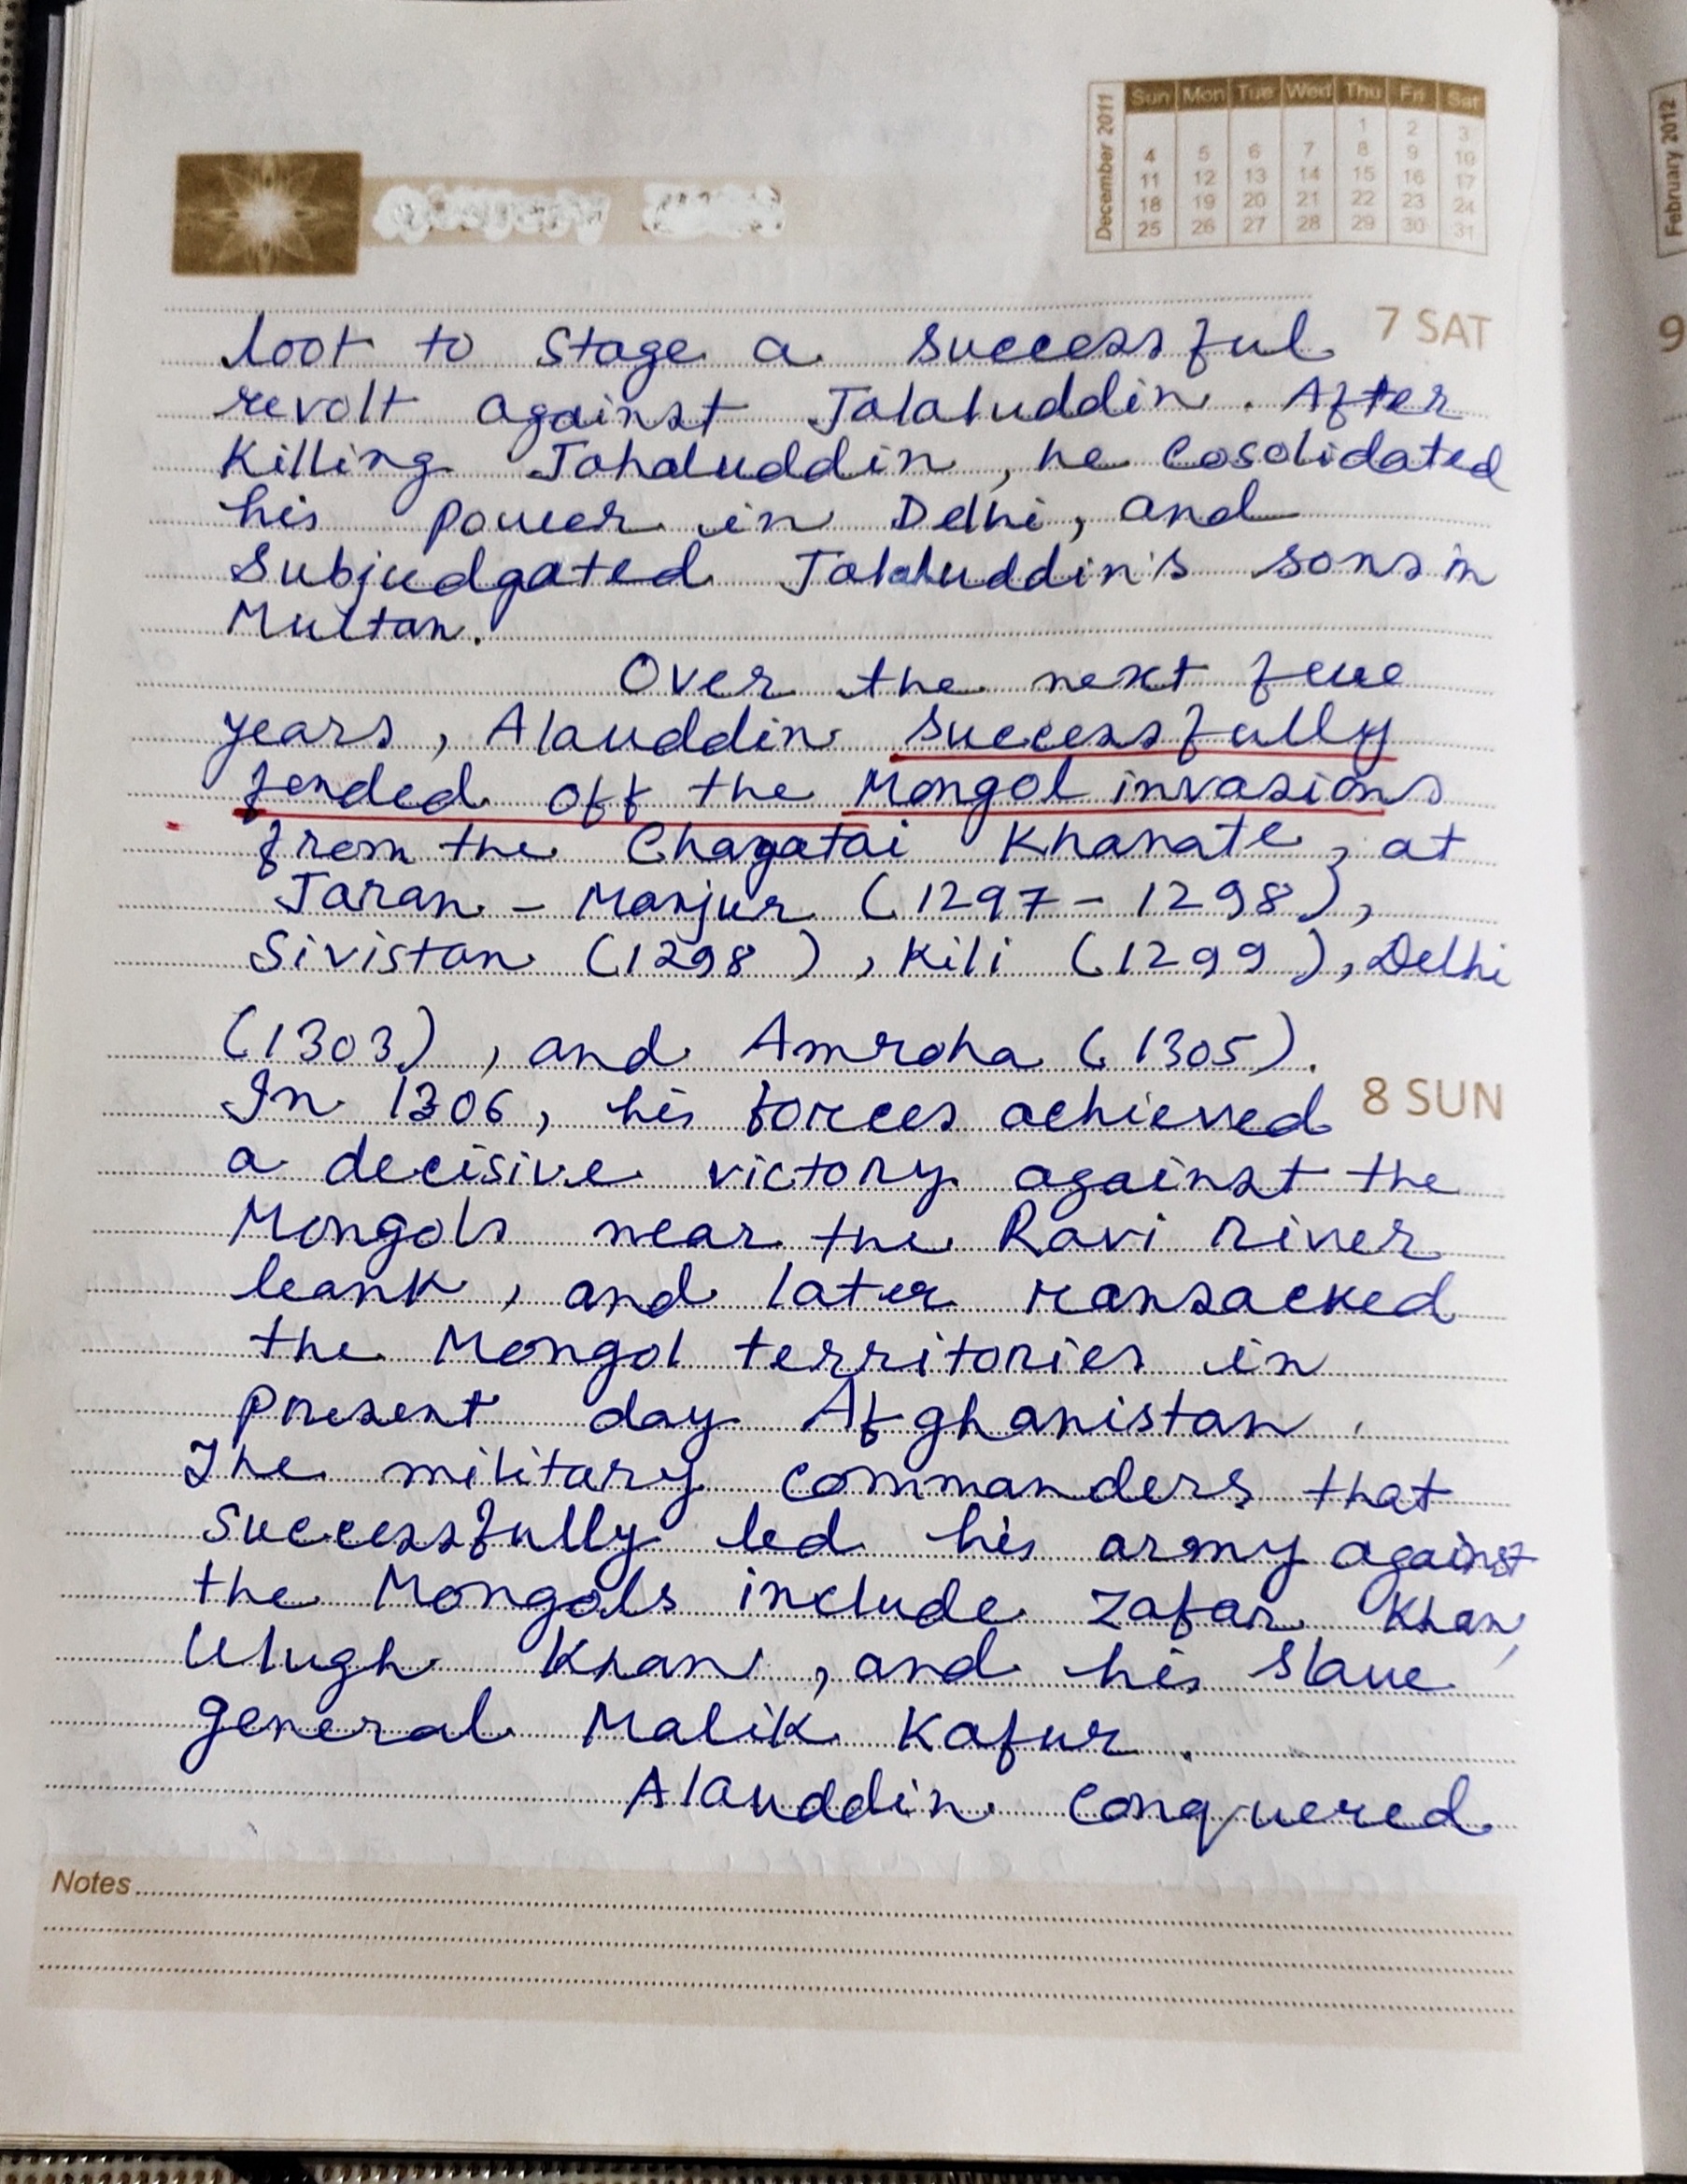 December 2011
Sun Mon Tue Wed Thu Fri Sat
1 2 3
4 5 6 7 8 9 10
11 12 13 14 15 16 17
18 19 20 21 22 23 24
25 26 27 28 29 30 31
February 2012
9
7 SAT
loot to stage a successful
revolt against Jalaluddin. After
Killing Jahaluddin, he cosolidated
his power in Delhi, and
Subjudgated Jalaluddin's sons in
Multan.
Over the next few
years, Alauddin successfully
fended off the Mongol invasions
from the Chagatai Khanate, at
Jaran - Manjur (1297 - 1298),
Sivistan (1298), Kili (1299), Delhi
(1303), and Amroha (1305).
8 SUN
In 1306, his forces achieved
a decisive victory against the
Mongols near the Ravi river
bank, and later ransacked
the Mongol territories in
present day Afghanistan.
The military commanders that
successfully led his army against
the Mongols include Zafar Khan,
Ulugh Khan, and his slave
general Malik Kafur.
Alauddin conquered
Notes